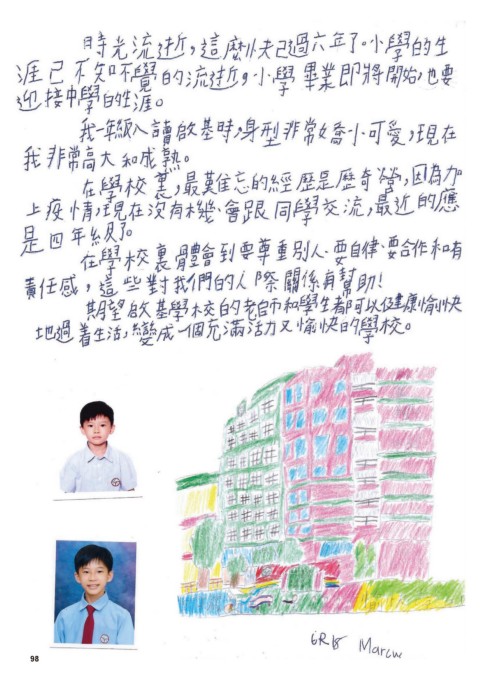 時光流逝，這麼快已過六年了。小學的生
涯已不知不覺的流逝，小學畢業即將開始，也要
迎接中學的生涯。
我一年級入讀啟基時，身型非常嬌小可愛，現在
我非常高大和成熟。
在學校裏，最難忘的經歷是歷奇營，因為加
上疫情，現在沒有機會跟同學交流，最近的應
是四年級了。
在學校裏體會到要尊重別人、要自律、要合作和有
責任感，這些對我們的人際關係有幫助！
期望啟基學校的老師和學生都可以健康愉快
地過着生活，變成一個充滿活力又愉快的學校。
98